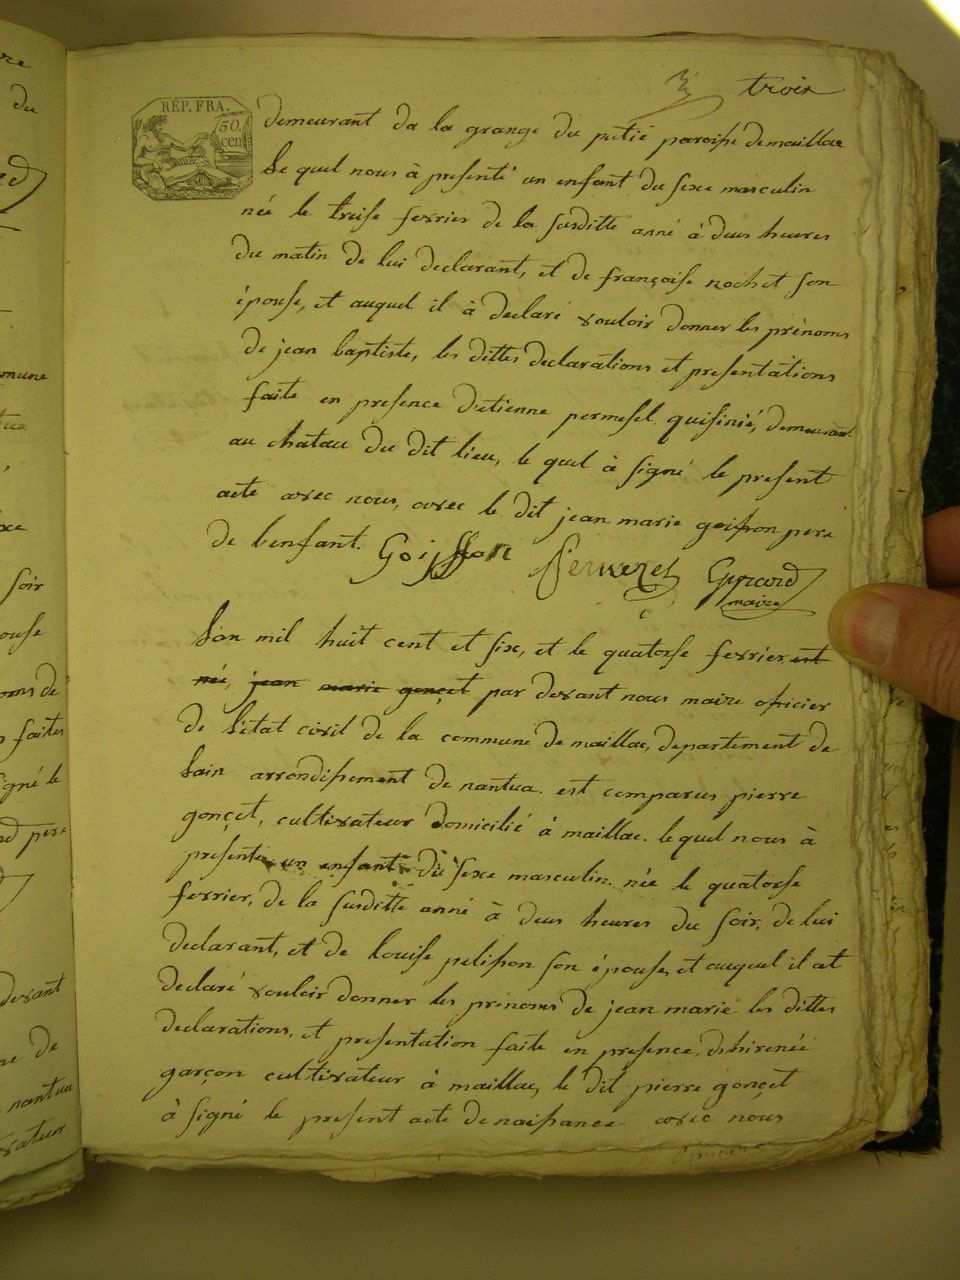 troix
RÉP. FRA.
50.
cen
demeurant da la grange du putié paroisse de maillac
Le quel nous à presenté un enfant du sexe masculin
née le treise fevrier de la susditte anné à deus heures
du matin de lui declarant, et de françoise nochet son
épouse, et auquel il à declaré vouloir donner les prénoms
de jean baptiste, les dittes declarations et presentations
faite en presence d'etienne permesel quisinié, demeurant
au chatau du dit lieu, le quel à signé le present
acte avec nous, avec le dit jean marie goisson pere
de lenfant. Goisson Permezel Girard
maire
Lan mil huit cent et six, et le quatorse fevrier est
né, jean marie gonçet par devant nous maire oficier
de l'etat civil de la commune de maillac, departement de
Lain arrondissement de nantua. est comparus pierre
gonçet, cultivateur domicilié à maillac. lequel nous à
presente un enfant du sexe masculin. née le quatorse
fevrier, de la susditte anné à deus heures du soir, de lui
declarant, et de Louise pelisson son épouse, et auquel il at
declaré vouloir donner les prenoms de jean marie les dittes
declarations, et presentation faite en presence, dhirenée
garçon cultivateur à maillac, le dit pierre gonçet
à signé le present acte de naissance avec nous